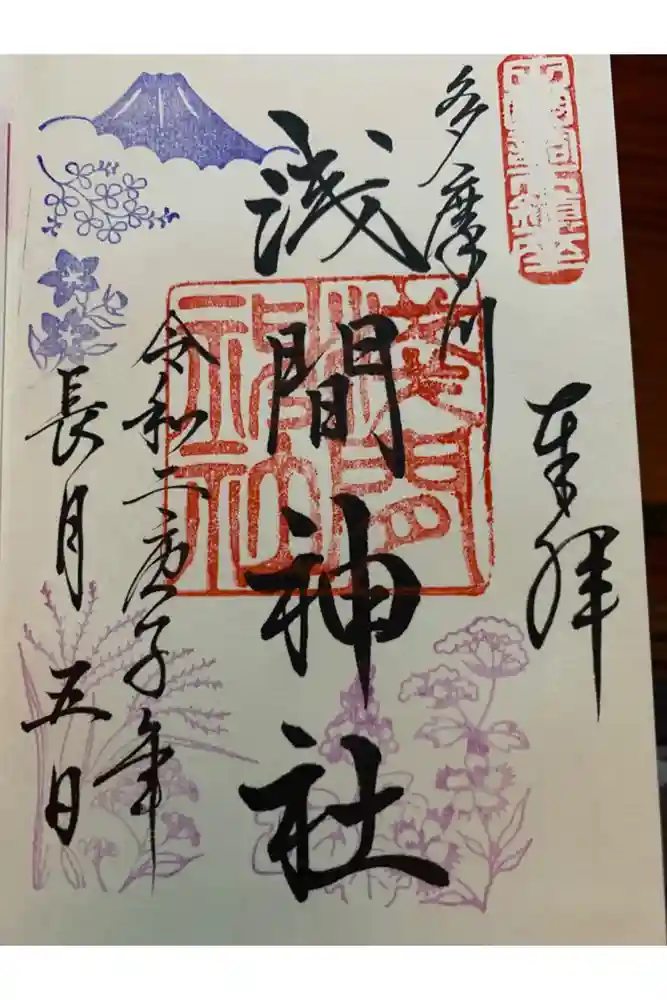 奉拝
多摩川
浅間神社
浅間神社
令和二庚子年
長月五日